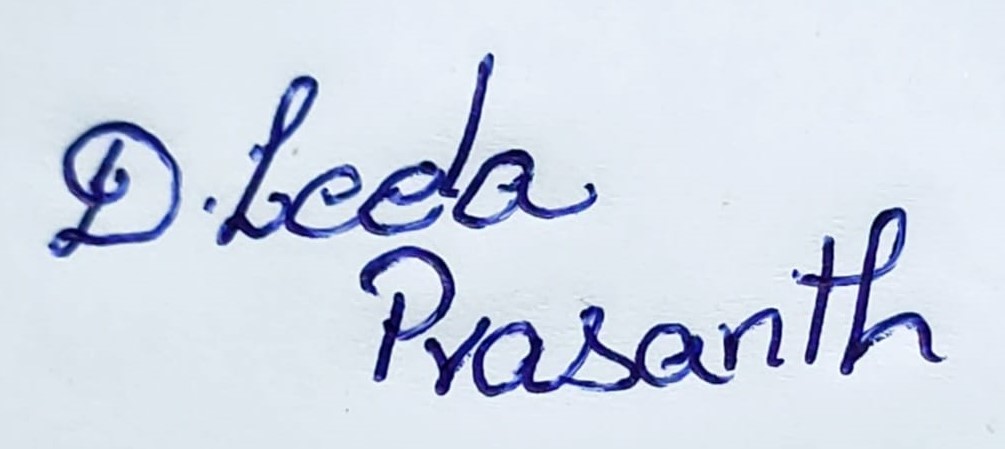 D. Leela
Prasanth